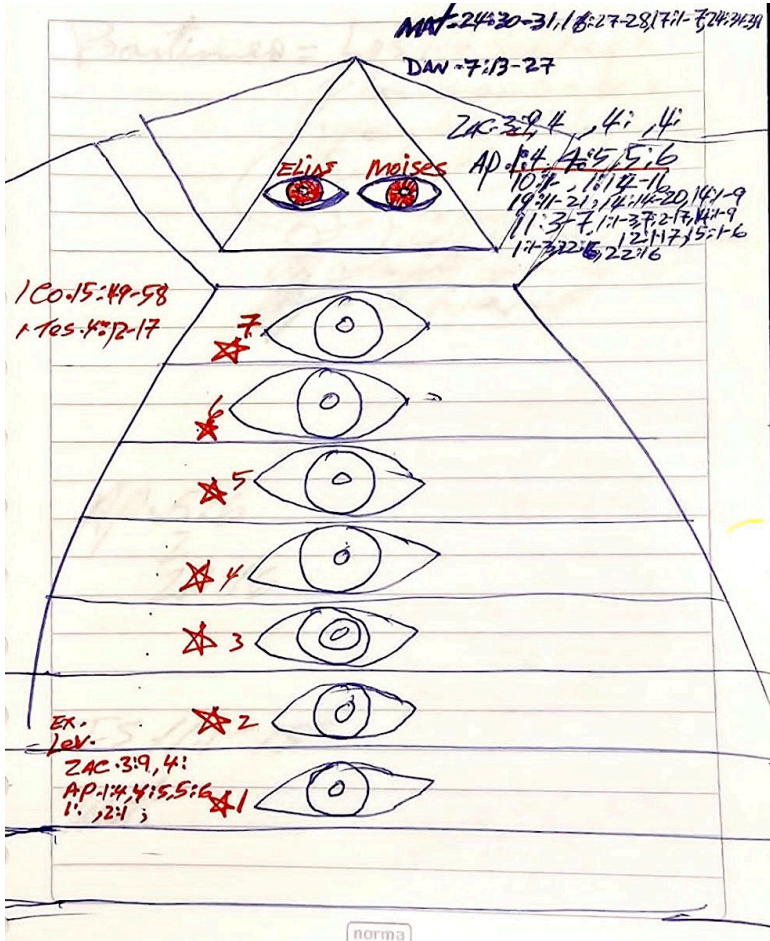 MAT-24:30-31,16:27-28,17:1-7,24:34-39
DAN-7:13-27
ZAC-3:9,4 , 4: , 4:
AP.1:4. 4:5,5:6
19:11-21, 14:14-20, 14:1-9
11:3-7, 1:1-3,7:2-17,14:1-9
22:16
ELIAS
MOISES
1 CO.15:49-58
1 Tes.4:12-17
7
6
5
4
3
2
1
EX.
Lev.
ZAC.3:9, 4:
AP.1:4,4:5,5:6
1: ,2:1 ;
norma